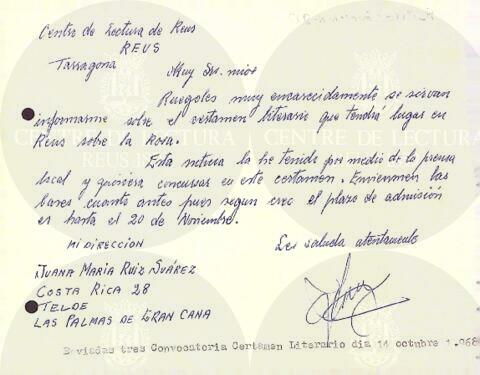 Centro de Lectura de Reus
REUS
Tarragona
Muy Srs. mios
Ruegoles muy encarecidamente se sirvan
informarme sobre el certamen literario que tendrá lugar en
Reus sobre la Rosa.
Esta noticia la he tenido por medio de la prensa
local y quisiera concursar en este certamen. Envienmen las
bases cuanto antes pues segun creo el plazo de admisión
es hasta el 20 de Noviembre.
MI DIRECCION
Les saluda atentamente
JUANA MARIA RUIZ SUÁREZ
COSTA RICA 28
TELDE
LAS PALMAS DE GRAN CANA
Enviadas tres Convocatoria Certamen Literario dia 14 octubre 1.968
CENTRE DE LECTURA
REUS
CENTRE DE LECTURA
REUS